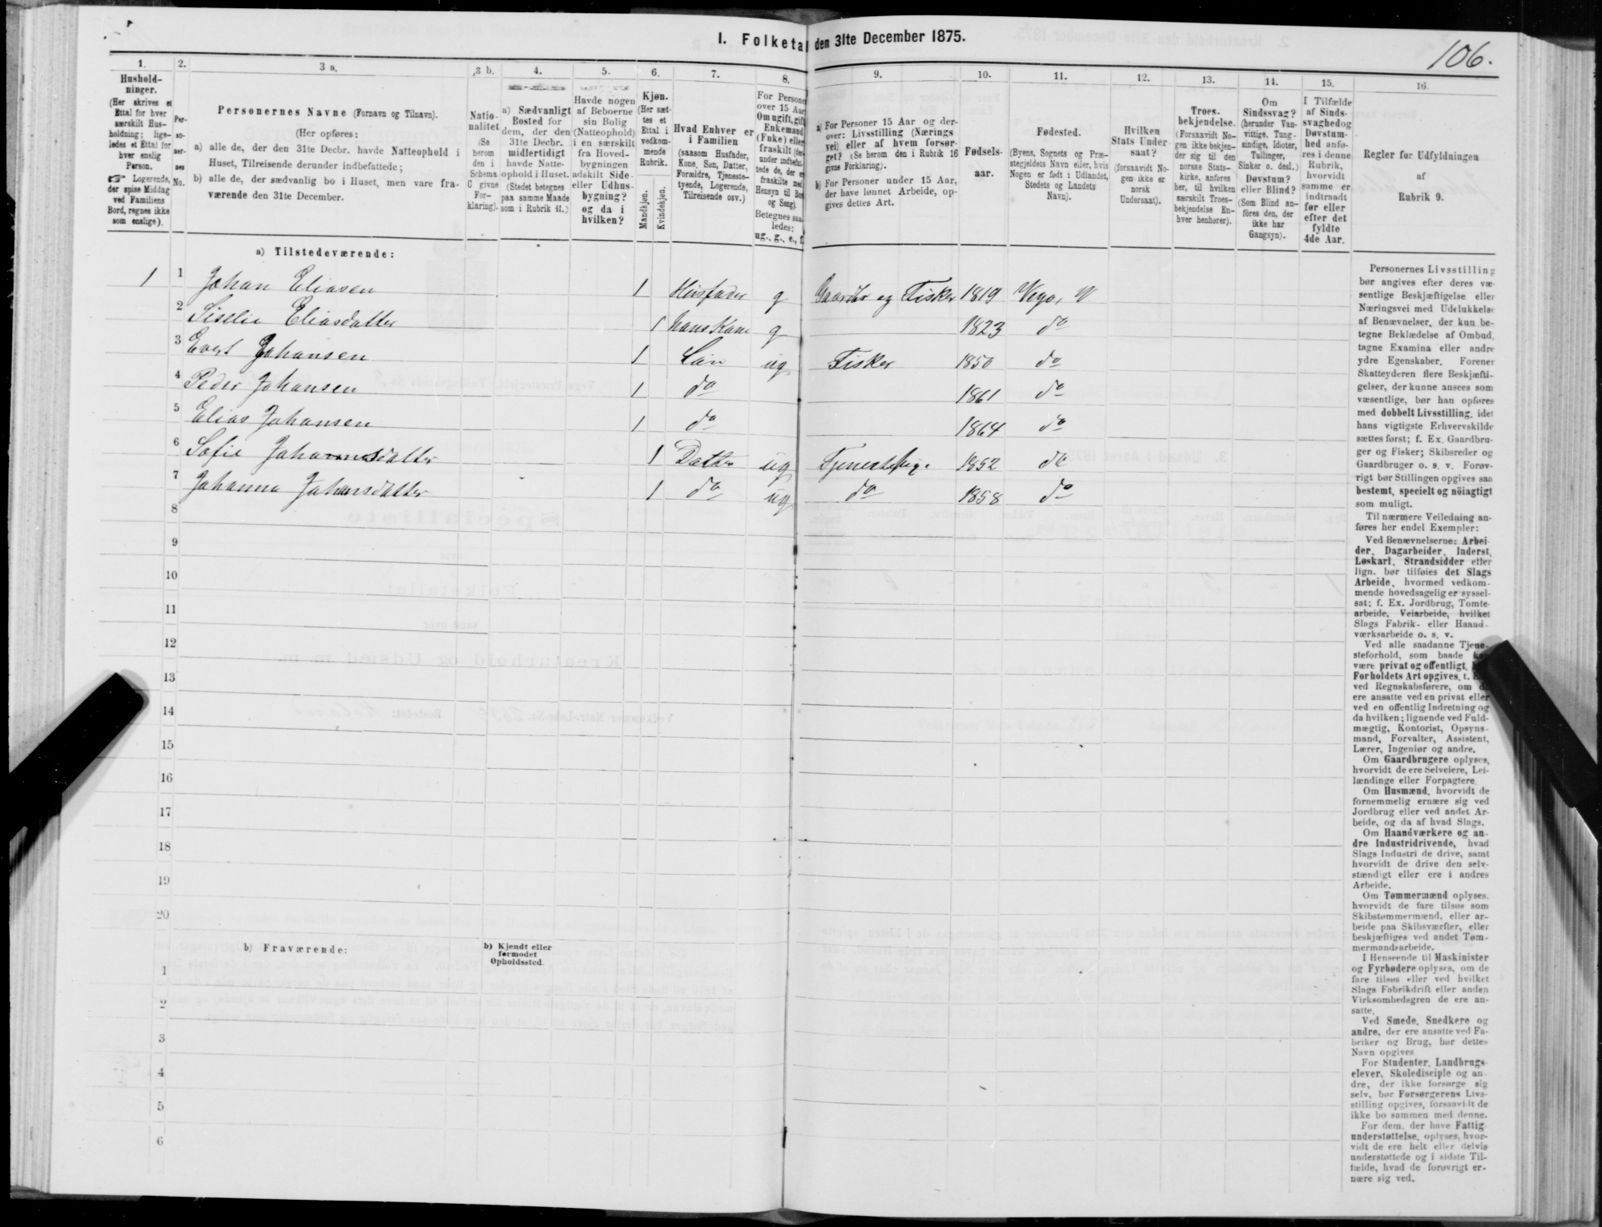 I. Folketal den 31te December 1875.
106.
1.
Hushold-
ninger.
(Her skrives et
Ettal for hver
særskilt Hus-
holdning; lige-
ledes et Ettal for
hver enslig
Person.
Logerende,
der spise Middag
ved Familiens
Bord, regnes ikke
som enslige).
2.
Per-
so-
ner-
nes
No.
3 a.
Personernes Navne (Fornavn og Tilnavn).
(Her opføres:
a) alle de, der den 31te Decbr. havde Natteophold i
Huset, Tilreisende derunder indbefattede;
b) alle de, der sædvanlig bo i Huset, men vare fra-
værende den 31te December.
3 b.
Natio-
nalitet
(Se
herom
den i
Schema
C givne
For-
klaring).
4.
a) Sædvanligt
Bosted for
dem, der den
31te Decbr.
midlertidigt
havde Natte-
ophold i Huset.
(Stedet betegnes
paa samme Maade
som i Rubrik 11.)
5.
Havde nogen
af Beboerne
sin Bolig
(Natteophold)
i en særskilt
fra Hoved-
bygningen
adskilt Side-
eller Udhus-
bygning?
og da i
hvilken?
6.
Kjøn.
(Her sæt-
tes et
Ettal i
vedkom-
mende
Rubrik.
Mandkjøn.
Kvindekjøn.
7.
Hvad Enhver er
i Familien
(saasom Husfader,
Kone, Søn, Datter,
Forældre, Tjeneste-
tyende, Logerende,
Tilreisende osv.)
8.
For Personer
over 15 Aar
Om ugift, gift,
Enkemand
(Enke) eller
fraskilt
Betegnes saa-
ledes:
ug., g., e., f.
9.
a) For Personer 15 Aar og der-
over: Livsstilling (Nærings
vei) eller af hvem forsør-
get? (Se herom den i Rubrik 16
givne Forklaring).
b) For Personer under 15 Aar,
der have lønnet Arbeide, op-
gives dettes Art.
10.
Fødsels-
aar.
11.
Fødested.
(Byens, Sognets og Præ-
stegjeldets Navn eller, hvis
Nogen er født i Udlandet,
Stedets og Landets
Navn).
12.
Hvilken
Stats Under
saat?
(forsaavidt No-
gen ikke er
norsk
Undersaat).
13.
Troes-
bekjendelse.
(Forsaavidt No-
gen ikke bekjen-
der sig til den
norske Stats-
kirke, anføres
her, til hvilken
særskilt Troes-
bekjendelse En-
hver henhører).
14.
Om
Sindssvag?
(herunder Van-
vittige, Tung-
sindige, Idioter,
Tullinger,
Sinker o. desl.)
Døvstum?
eller Blind?
(Som Blind an-
føres den, der
ikke har
Gangsyn).
15.
I Tilfælde
af Sinds-
svaghed og
Døvstum-
hed anfø-
res i denne
Rubrik,
hvorvidt
samme er
indtraadt
før eller
efter det
fyldte
4de Aar.
16.
Regler for Udfyldningen
af
Rubrik 9.
a) Tilstedeværende:
1 1 Johan Eliasen 1 Husfader g Gaardbr og Fisker 1819 Vega,
2 Siselie Eliasdatter 1 hans Kone g 1823 do
3 Evert Johansen 1 Søn ug Fisker 1850 do
4 Peder Johansen 1 do 1861 do
5 Elias Johansen 1 do 1864 do
6 Sofie Johannsdatter 1 Datter ug Tjenestepige 1852 do
7 Johanna Johansdatter 1 do ug do 1858 do
8
9
10
11
12
13
14
15
16
17
18
19
20
b) Fraværende:
b) Kjendt eller
formodet
Opholdssted.
1
2
3
4
5
6
Personernes Livsstilling
bør angives efter deres væ-
sentlige Beskjæftigelse eller
Næringsvei med Udelukkelse
af Benævnelser, der kun be-
tegne Beklædelse af Ombud,
tagne Examina eller andre
ydre Egenskaber. Forener
Skatteyderen flere Beskjæfti-
gelser, der kunne ansees som
væsentlige, bør han opføres
med dobbelt Livsstilling, idet
hans vigtigste Erhvervskilde
sættes først; f. Ex. Gaardbru-
ger og Fisker; Skibsreder og
Gaardbruger o. s. v. Forøv-
rigt bør Stillingen opgives saa
bestemt, specielt og nöiagtigt
som muligt.
Til nærmere Veiledning an-
føres her endel Exempler:
Ved Benævnelserne: Arbei-
der, Dagarbeider, Inderst,
Løskarl, Strandsidder eller
lign. bør tilføies det Slags
Arbeide, hvormed vedkom-
mende hovedsagelig er syssel-
sat; f. Ex. Jordbrug, Tomte-
arbeide, Veiarbeide, hvilket
Slags Fabrik- eller Haand-
værksarbeide o. s. v.
Ved alle saadanne Tjene-
steforhold, som baade
være privat og offentligt,
Forholdets Art opgives, t.
ved Regnskabsførere, om
ere ansatte ved en privat eller
ved en offentlig Indretning og
da hvilken; lignende ved Fuld-
mægtig, Kontorist, Opsyns-
mand, Forvalter, Assistent,
Lærer, Ingeniør og andre.
Om Gaardbrugere oplyses,
hvorvidt de ere Selveiere, Lei-
lændinge eller Forpagtere.
Om Husmænd, hvorvidt de
fornemmelig ernære sig ved
Jordbrug eller ved andet Ar-
beide, og da af hvad Slags.
Om Haandværkere og an-
dre Industridrivende, hvad
Slags Industri de drive, samt
hvorvidt de drive den selv-
stændigt eller ere i andres
Arbeide.
Om Tømmermænd oplyses,
hvorvidt de fare tilsøs som
Skibstømmermænd, eller ar-
beide paa Skibsværfter, eller
beskjæftiges ved andet Tøm-
mermandsarbeide.
I Henseende til Maskinister
og Fyrbødere oplyses, om de
fare tilsøs eller ved hvilket
Slags Fabrikdrift eller anden
Virksomhedsgren de ere an-
satte.
Ved Smede, Snedkere og
andre, der ere ansatte ved Fa-
briker og Brug, bør dettes
Navn opgives
For Studenter, Landbrugs-
elever, Skoledisciple og an-
dre, der ikke forsørge sig
selv, bør Forsørgerens Livs-
stilling opgives, forsaavidt de
ikke bo sammen med denne.
For dem, der have Fattig-
understøttelse, oplyses, hvor-
vidt de ere helt eller delvis
understøttede og i sidste Til-
fælde, hvad de forøvrigt er-
nære sig ved.